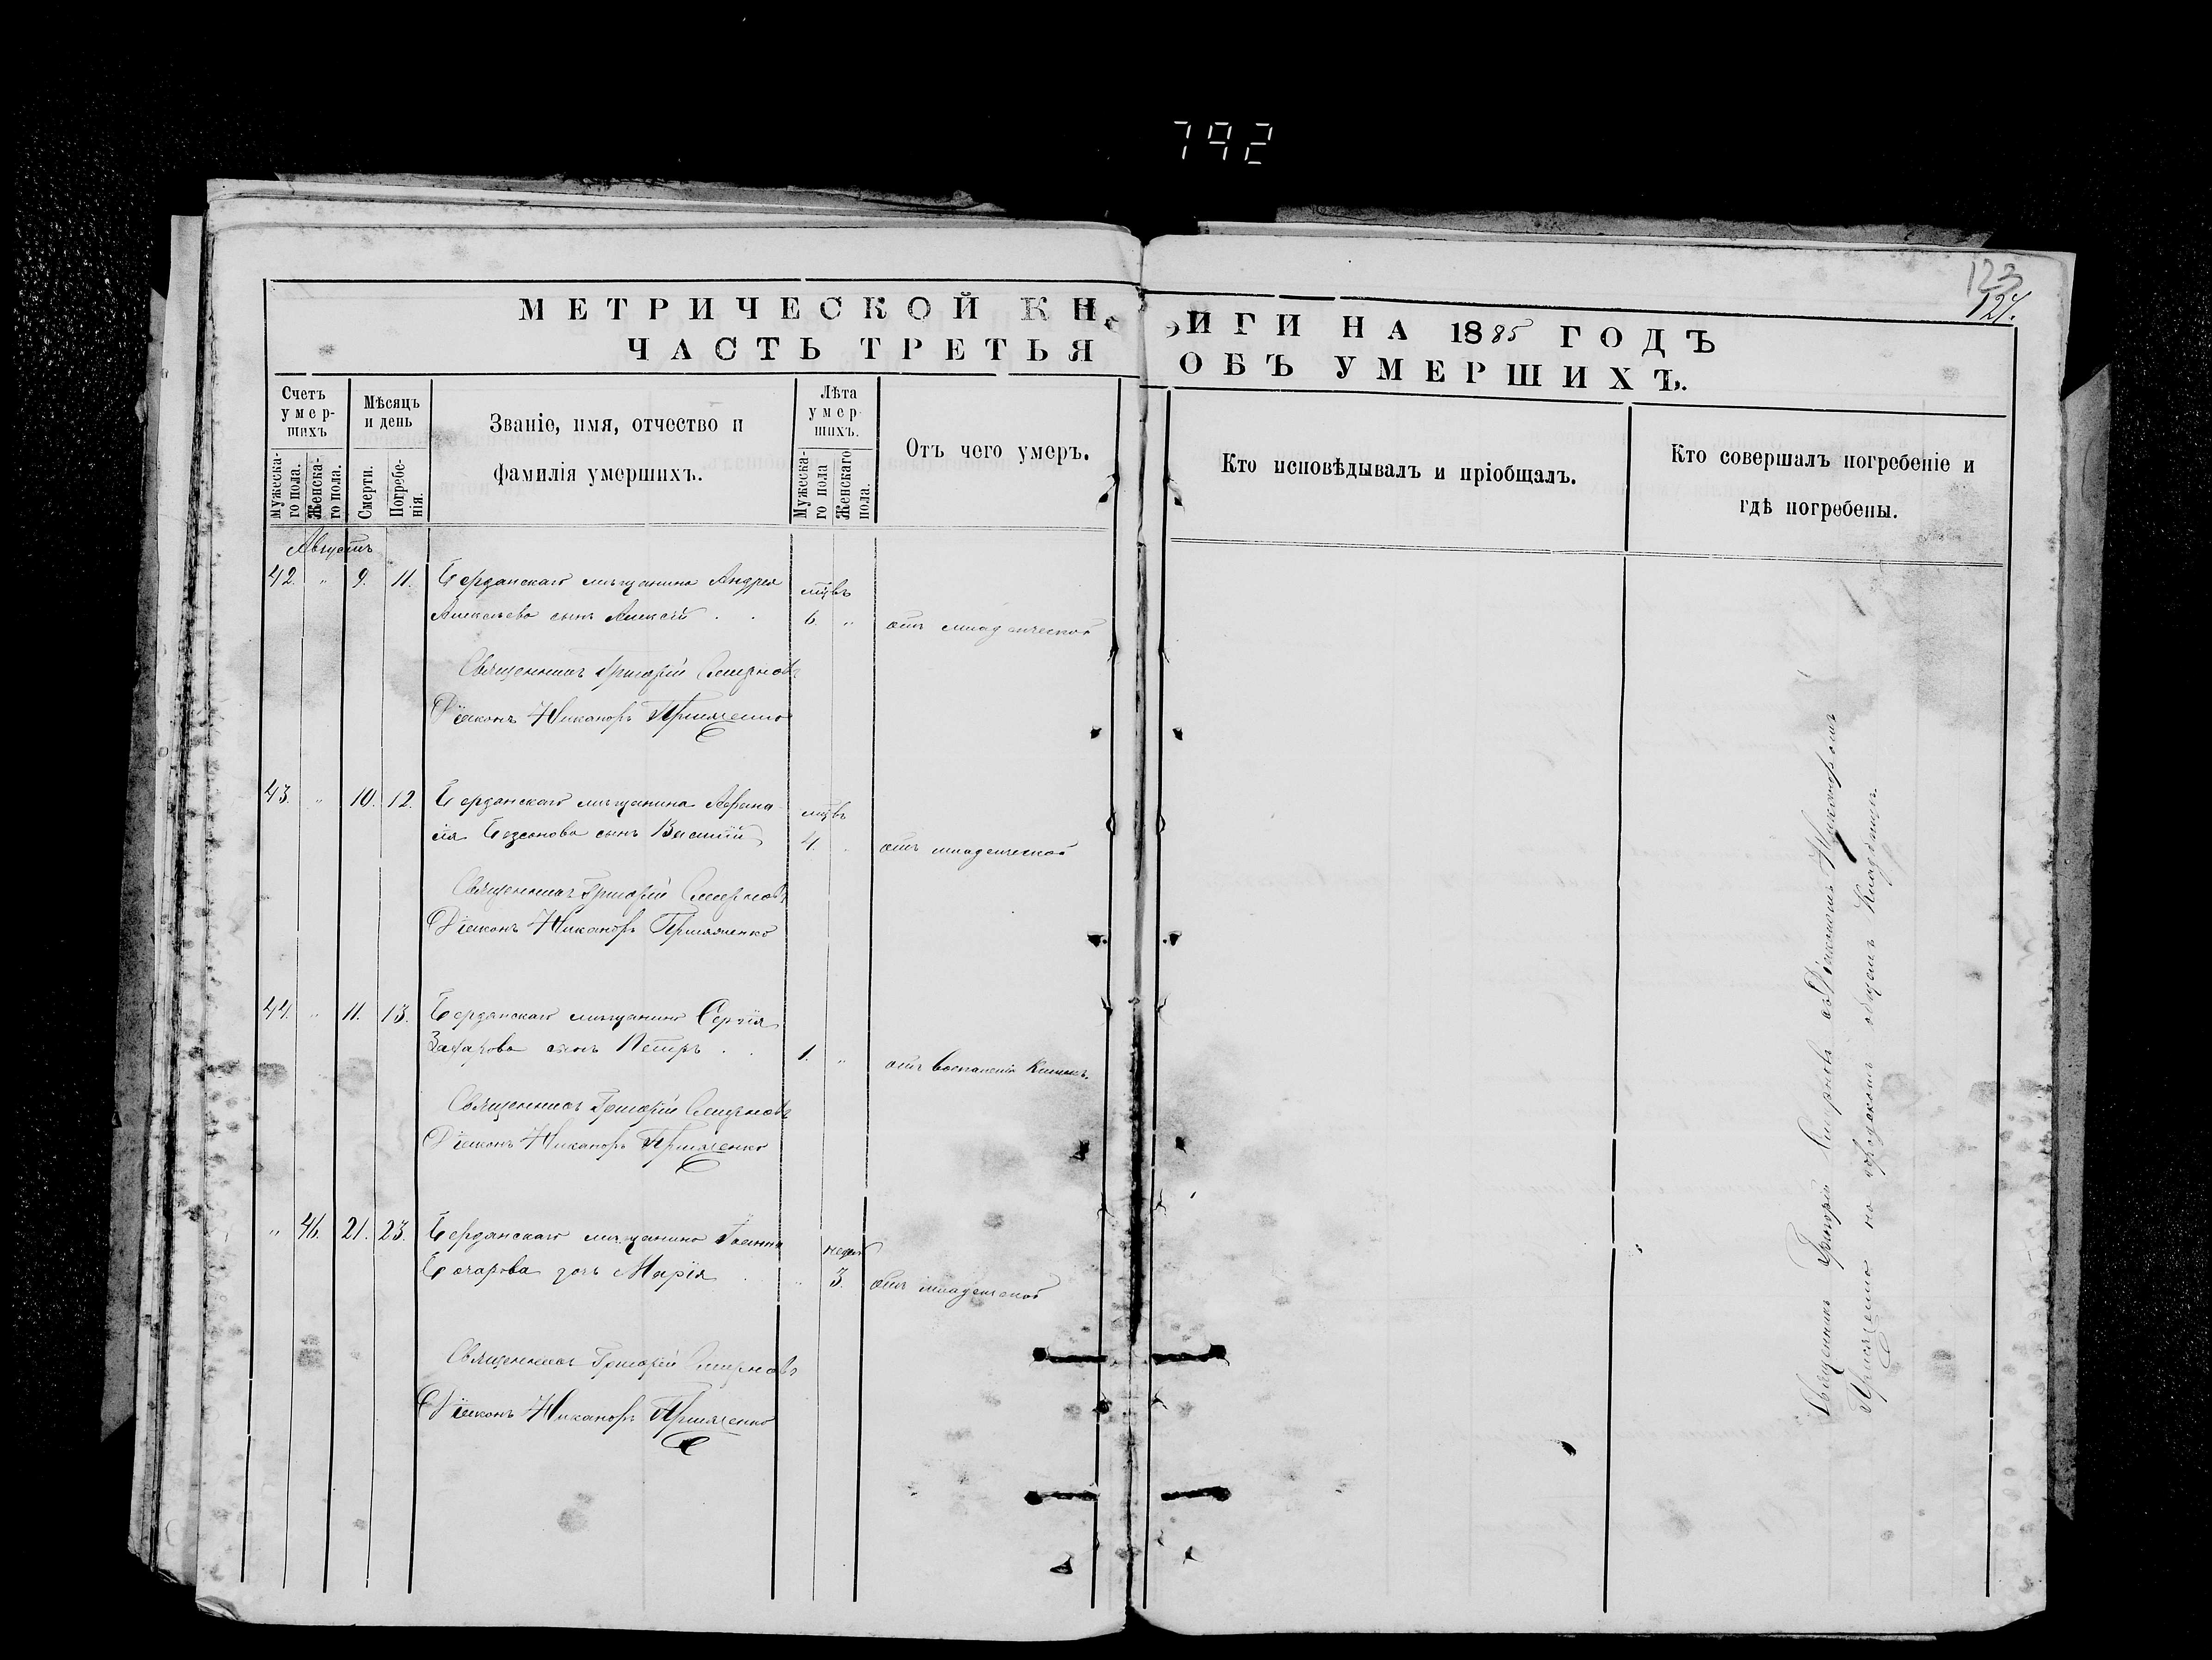 792
123
124.
МЕТРИЧЕСКОЙ КНИГИ НА 1885 ГОДЪ
ЧАСТЬ ТРЕТЬЯ ОБЪ УМЕРШИХЪ.
Счетъ умер-шихъ
Мужеска-го пола.
Женска-го пола.
Мѣсяцъ и день
Смерти.
Погребе-нія.
Званіе, имя, отчество и
фамилія умершихъ.
Лѣта умер-шихъ.
Мужеска-го пола
Женскаго пола.
Отъ чего умеръ.
Кто исповѣдывалъ и пріобщалъ.
Кто совершалъ погребеніе и
гдѣ погребены.
Августъ
42. " 9. 11. Бердянскаго мѣщанина Андрея мцвъ
Алексѣева сынъ Алексій . . 6. " отъ младенческой
Священникъ Григорій Смирновъ
Діаконъ Никаноръ
43. " 10. 12. Бердянскаго мѣщанина Афана- мцвъ
сія Безсонова сынъ Василій 4. " отъ младенческой
Священникъ Григорій Смирновъ
Діаконъ Никаноръ
44. " 11. 13. Бердянскаго мѣщанина Сергія
Захарова сынъ Петръ . . 1. " отъ воспаленія кишекъ.
Священникъ Григорій Смирновъ
Діаконъ Никаноръ
" 46. 21. 23. Бердянскаго мѣщанина Іоанна недѣль
Бочарова дочь Марія . " 3. отъ младенческой
Священникъ Григорій Смирновъ
Діаконъ Никаноръ
Священникъ Григорій Смирновъ съ Діакономъ Никаноромъ
на городскомъ общемъ кладбищѣ.